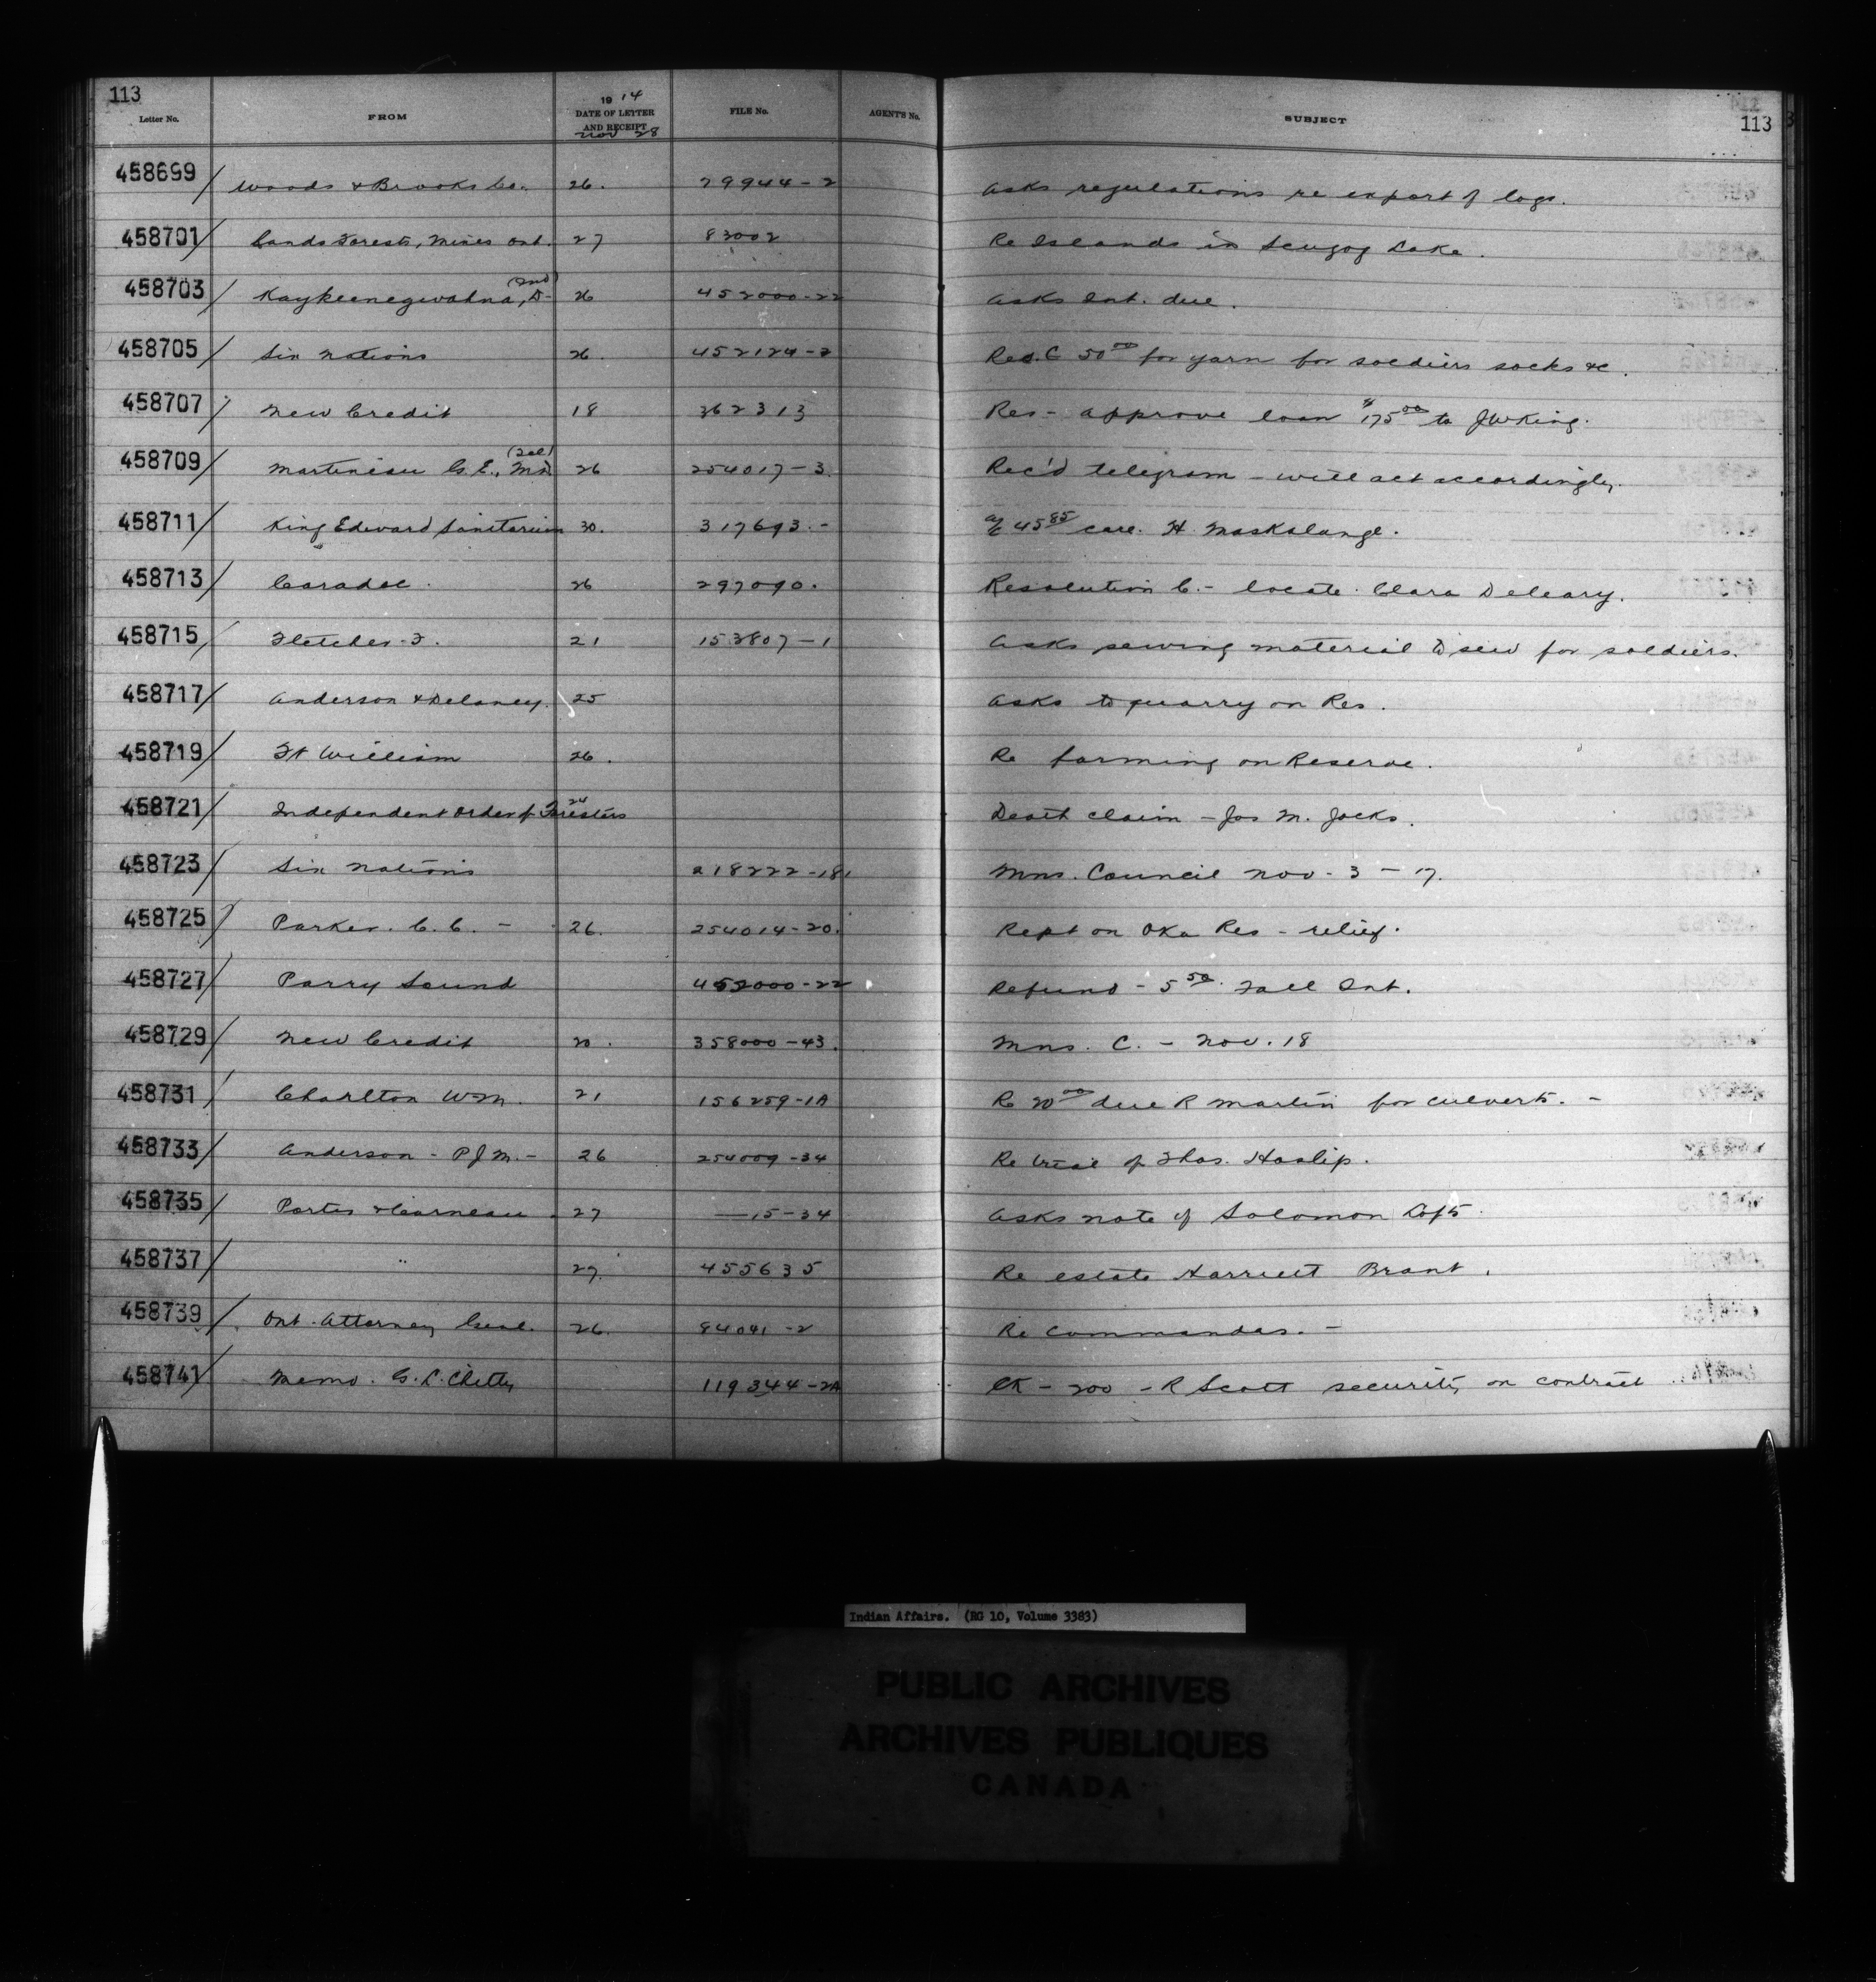 113
1914
Letter No. FROM DATE OF LETTER AND RECEIPT FILE No. AGENT'S No. SUBJECT 113
Nov 28
458699 / Woods & Brooks Co. 26. 29944-2 Asks regulations re export of logs.
458701 / Lands Forests, Mines Ont. 27 83002 Re Islands in Scugog Lake.
458703 / Kaykeenegwahna, D- (Ind) 26 452000-22 Asks Int. due.
458705 / Six Nations 26. 452124-2 Res. C 50 00 for yarn for soldiers socks &c.
458707 / New Credit 18 362313 Res - approve loan $175 00 to J W King.
458709 / Martineau C. E., M.D. (Tel) 26 254017-3. Rec'd telegram - will act accordingly.
458711 / King Edward Sanitarium 30. 317693.- a/c 45 85 care. H. Maskalange.
458713 / Caradoc. 26 297090. Resolution C.- locate. Clara Deleary.
458715 / Fletcher F. 21 153807-1 Asks sewing material to sew for soldiers.
458717 / Anderson & Delaney. 25 Asks to quarry on Res.
458719 / Ft William 26. Re farming on Reserve.
458721 / Independent Order of Foresters 24 Death claim - Jos M. Jocks.
458723 / Six Nations 218222-181 Mns. Council Nov - 3 - 17.
458725 / Parker. C. C. - 26. 254014-20. Rept on Oka Res - relief.
458727 / Parry Sound 452000-22 Refund - 5 50. Fall Int.
458729 / New Credit 20. 358000-43. Mns. C. - Nov. 18
458731 / Charlton Wm. 21 156259-1A Re 20 00 due R Martin for culverts. -
458733 / Anderson - P J M. - 26 254009-34 Re trial of Thos. Haslip.
458735 / Porter & Carneau 27 —15-34 Asks note of Solomon Loft.
458737 / " 27. 455635 Re estate Harriett Brant.
458739 / Ont. Attorney Genl. 26. 84041-2 Re Commandas. -
458741 / Memo. G. L. Chitty 119344-2A Ck - 200 - R Scott security on contract
Indian Affairs. (RG 10, Volume 3383)
PUBLIC ARCHIVES
ARCHIVES PUBLIQUES
CANADA